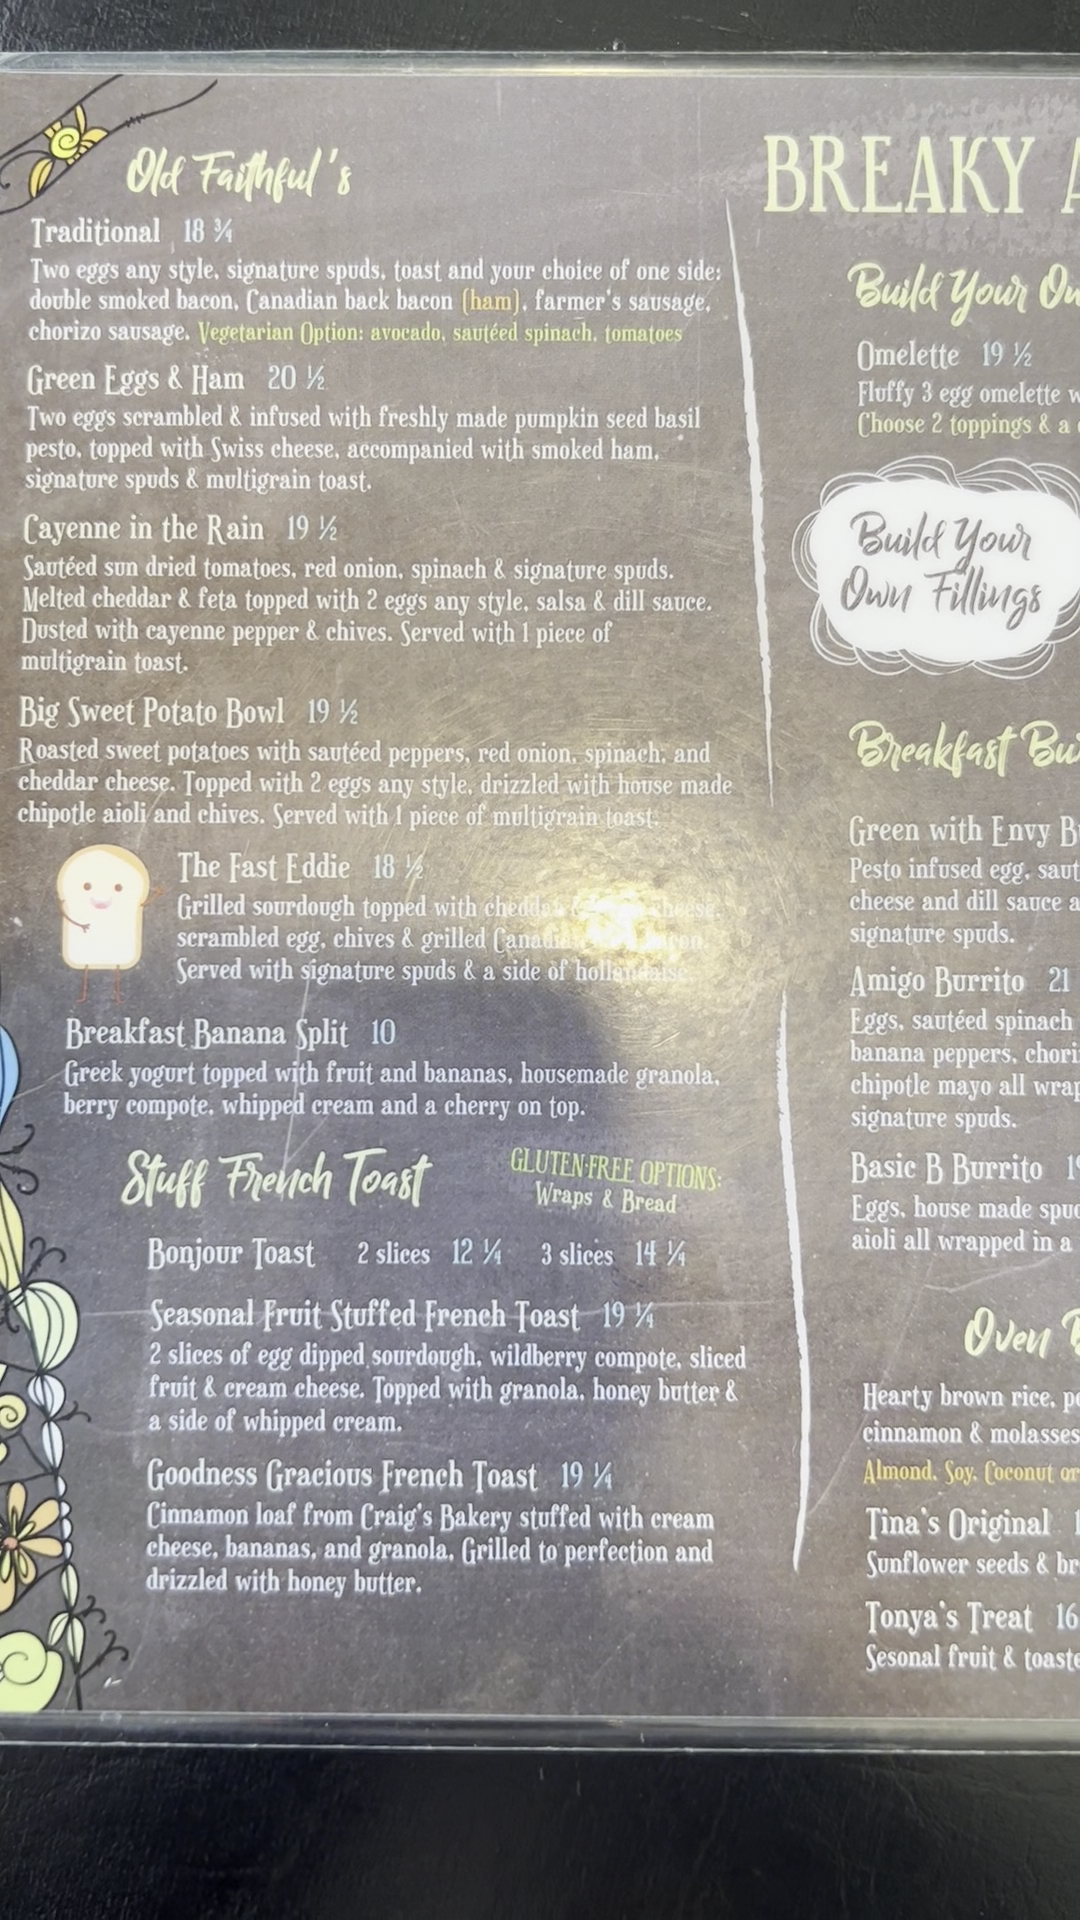 Old Faithful's
Traditional 18 ¾
Two eggs any style, signature spuds, toast and your choice of one side:
double smoked bacon, Canadian back bacon (ham), farmer's sausage,
chorizo sausage. Vegetarian Option: avocado, sautéed spinach, tomatoes
Green Eggs & Ham 20 ½
Two eggs scrambled & infused with freshly made pumpkin seed basil
pesto, topped with Swiss cheese, accompanied with smoked ham,
signature spuds & multigrain toast.
Cayenne in the Rain 19 ½
Sautéed sun dried tomatoes, red onion, spinach & signature spuds.
Melted cheddar & feta topped with 2 eggs any style, salsa & dill sauce.
Dusted with cayenne pepper & chives. Served with 1 piece of
multigrain toast.
Big Sweet Potato Bowl 19 ½
Roasted sweet potatoes with sautéed peppers, red onion, spinach, and
cheddar cheese. Topped with 2 eggs any style, drizzled with house made
chipotle aioli and chives. Served with 1 piece of multigrain toast.
The Fast Eddie 18 ½
Grilled sourdough topped with cheddar cheese,
scrambled egg, chives & grilled Canadian bacon.
Served with signature spuds & a side of hollandaise.
Breakfast Banana Split 10
Greek yogurt topped with fruit and bananas, housemade granola,
berry compote, whipped cream and a cherry on top.
Stuff French Toast
GLUTEN-FREE OPTIONS:
Wraps & Bread
Bonjour Toast 2 slices 12 ¼ 3 slices 14 ¼
Seasonal Fruit Stuffed French Toast 19 ¼
2 slices of egg dipped sourdough, wildberry compote, sliced
fruit & cream cheese. Topped with granola, honey butter &
a side of whipped cream.
Goodness Gracious French Toast 19 ¼
Cinnamon loaf from Craig's Bakery stuffed with cream
cheese, bananas, and granola, Grilled to perfection and
drizzled with honey butter.
BREAKY
Build Your
Omelette 19 ½
Fluffy 3 egg omelette
Choose 2 toppings & a
Build Your
Own Fillings
Breakfast
Green with Envy
Pesto infused egg,
cheese and dill sauce
signature spuds.
Amigo Burrito 21
Eggs, sautéed spinach
banana peppers,
chipotle mayo all
signature spuds.
Basic B Burrito
Eggs, house made
aioli all wrapped in a
Oven
Hearty brown rice,
cinnamon & molasses
Almond, Soy, Coconut or
Tina's Original
Sunflower seeds &
Tonya's Treat 16
Sesonal fruit &